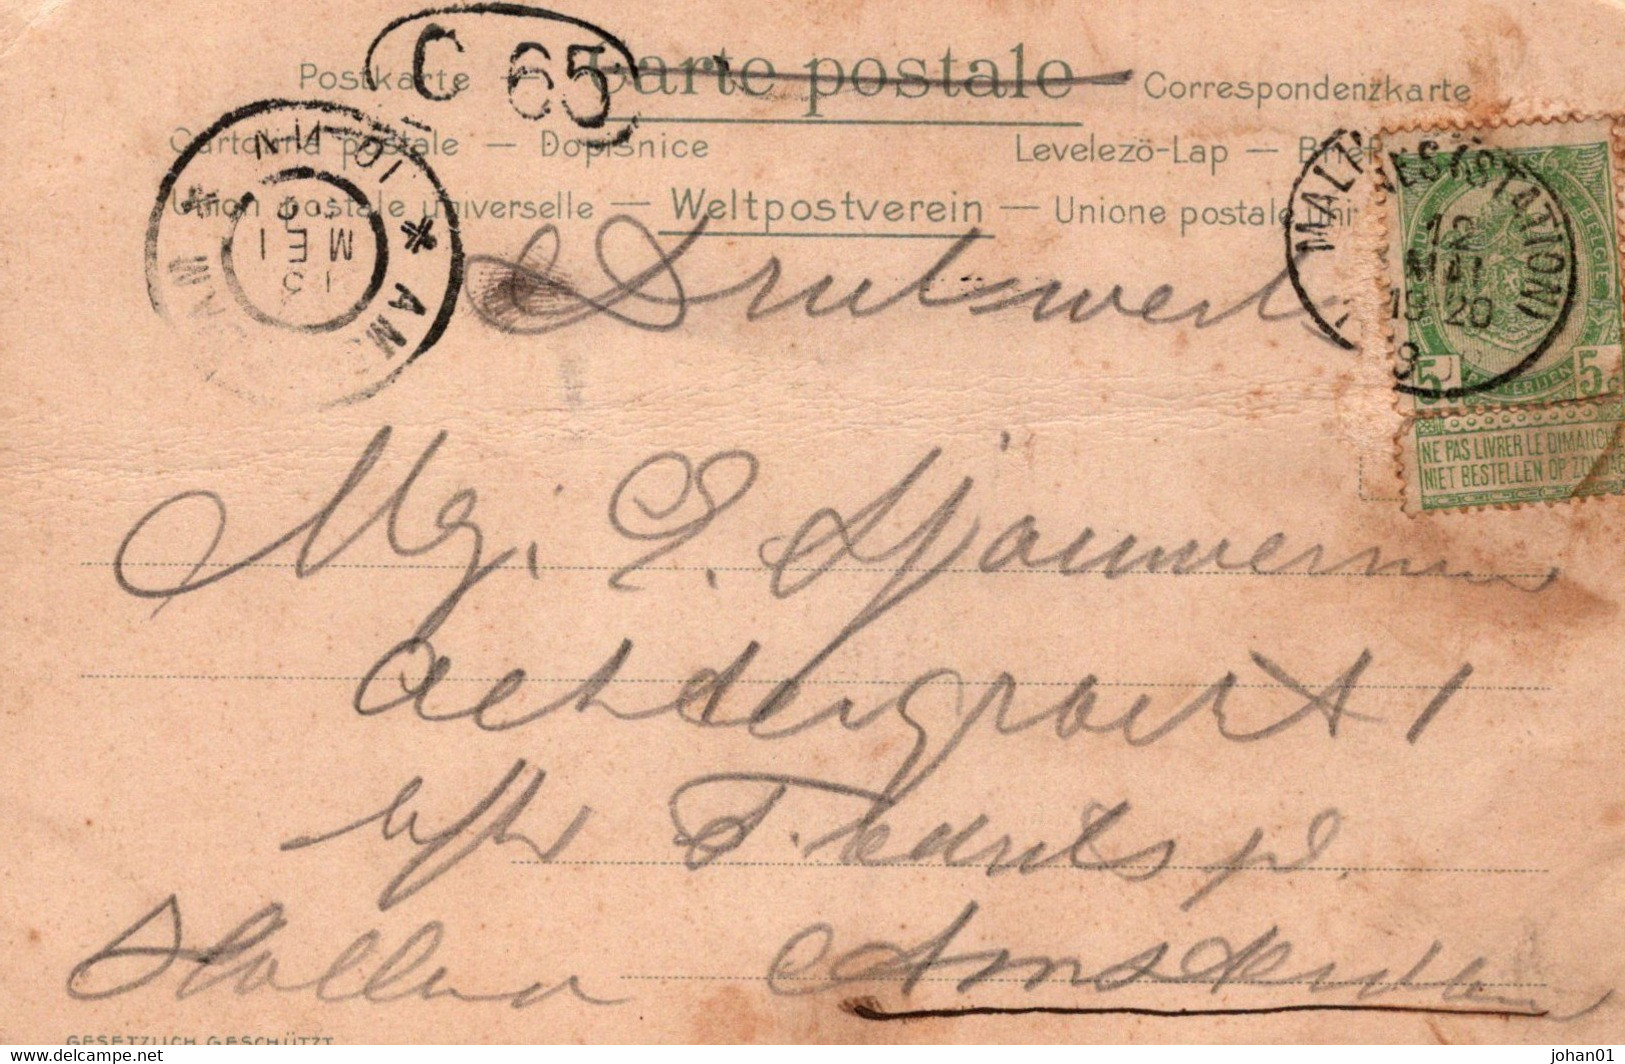 C 65
Postkarte — Carte postale — Correspondenzkarte
Cartolina postale — Dopisnice Levelezö-Lap —
Union postale universelle — Weltpostverein — Unione postale uni
Drukwerk
MALINES (STATION)
12
MAI
19-20
10-11 N
13
MEI
AMS
BELGIE
5 5
NE PAS LIVRER LE DIMANCHE
NIET BESTELLEN OP ZONDAG
Mej. E.
Achtergracht 1
Holland Amsterdam
GESETZLICH GESCHÜTZT
delcampe.net johan01